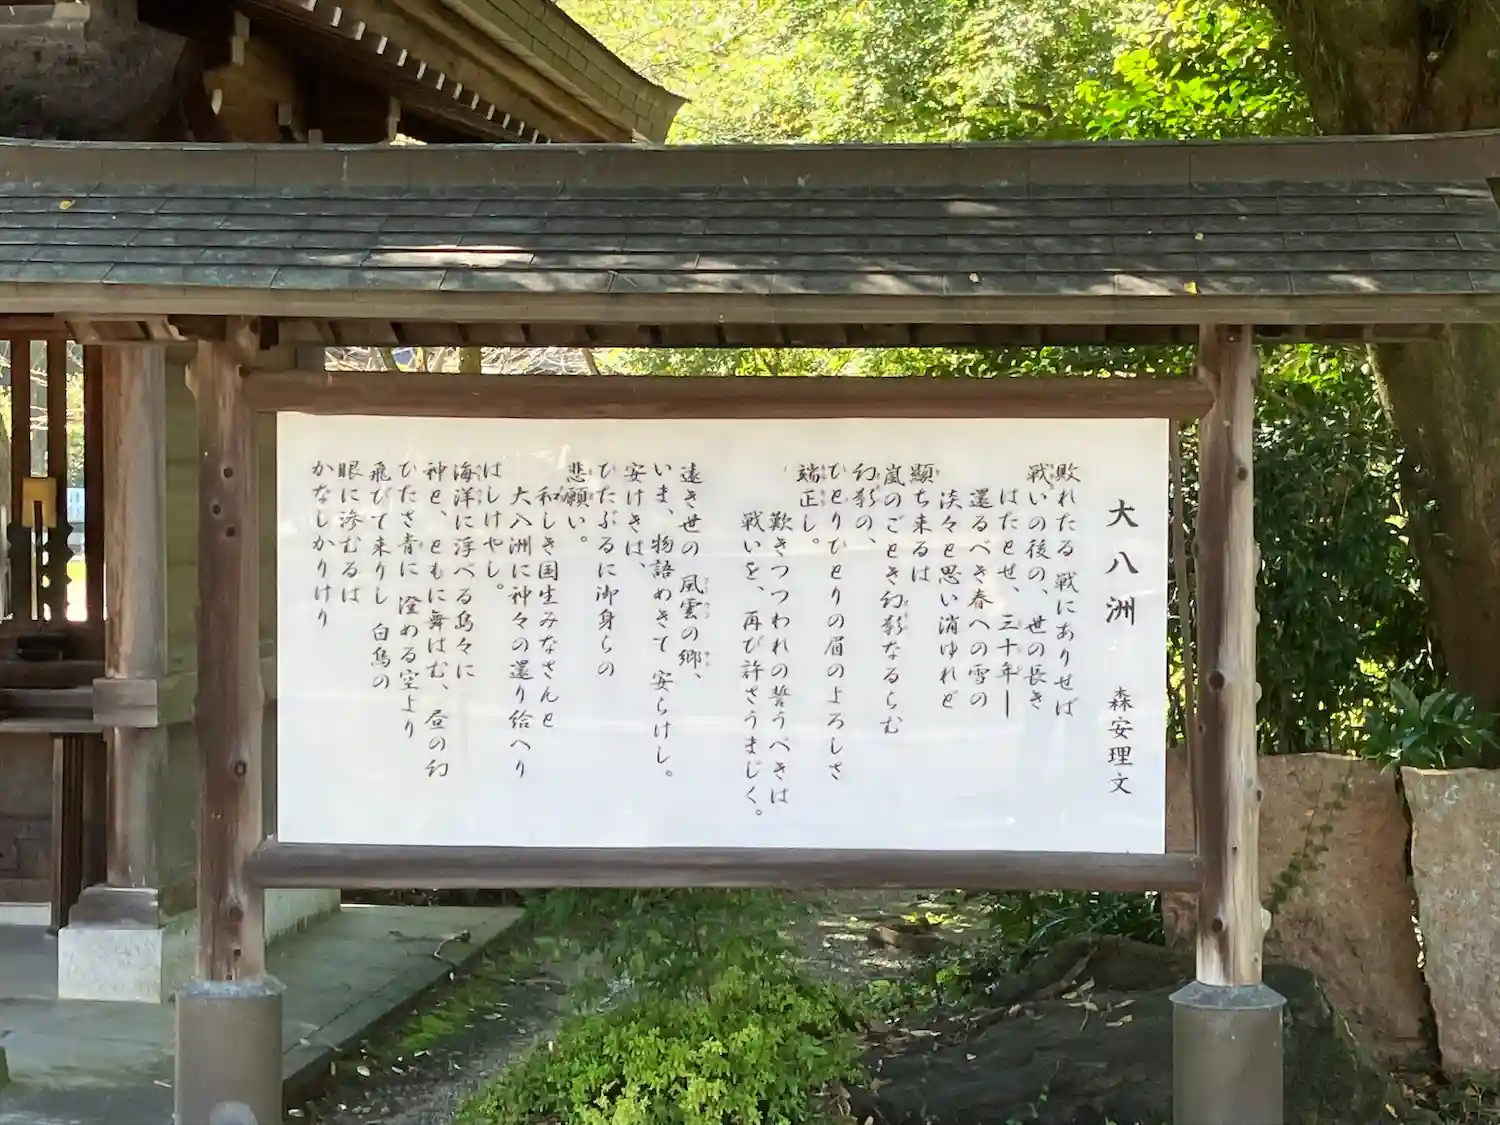 大八洲　森安理文
敗れたる 戦にありせば
戦いの後の、世の長き
はたとせ、三十年―
還るべき春への雪の
淡々と思い消ゆれど
顕ち来るは
嵐のごとき幻影なるらむ
幻影の、
ひとりひとりの眉のよろしさ
端正し。
歎きつつわれの誓うべきは
戦いを、再び許さうまじく。
遠き世の 風雲の郷、
いま、物語めきて 安らけし。
安けきは、
ひたぶるに御身らの
悲願い。
和しき国生みなさんと
大八洲に神々の還り給へり
はしけやし。
海洋に浮べる島々に
神と、ともに舞はむ、昼の幻
ひたさ青に 澄める空より
飛びて来りし 白鳥の
眼に滲むるは
かなしかりけり